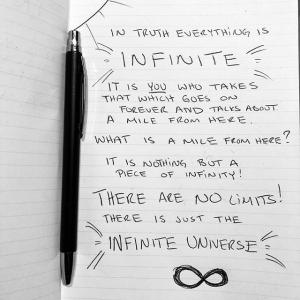 IN TRUTH EVERYTHING IS
INFINITE
IT IS YOU WHO TAKES
THAT WHICH GOES ON
FOREVER AND TALKS ABOUT
A MILE FROM HERE.
WHAT IS A MILE FROM HERE?
IT IS NOTHING BUT A
PIECE OF INFINITY!
THERE ARE NO LIMITS!
THERE IS JUST THE
INFINITE UNIVERSE